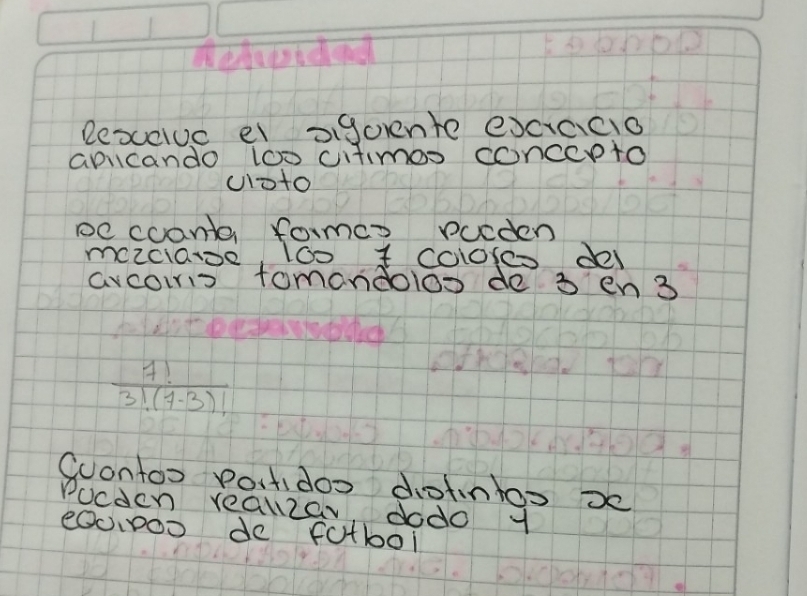 Actividad
Resuelve el siguiente exercicio
aplicando los ultimos concepto
visto
De cuanta formas pueden
mezclarse los 7 colores del
arcoiris tomandolos de 3 en 3
Desarrollo
7!
3!(7-3)!
Cuantos partidos distintos se
pueden realizar dado 7
equipos de futbol